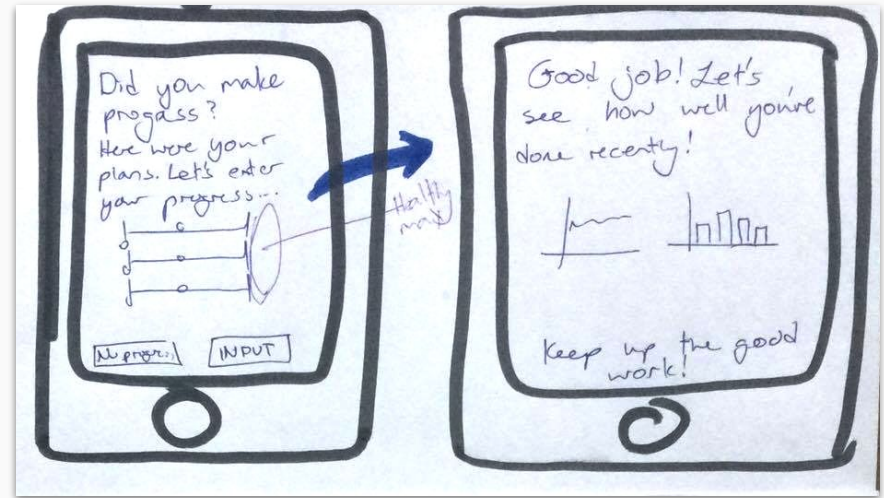 Did you make
progass?
Here were your
plans. Let's enter
your progress...
Healthy
max
No progr...
INPUT
Good job! Let's
see how well you're
done recently!
Keep up the good
work!